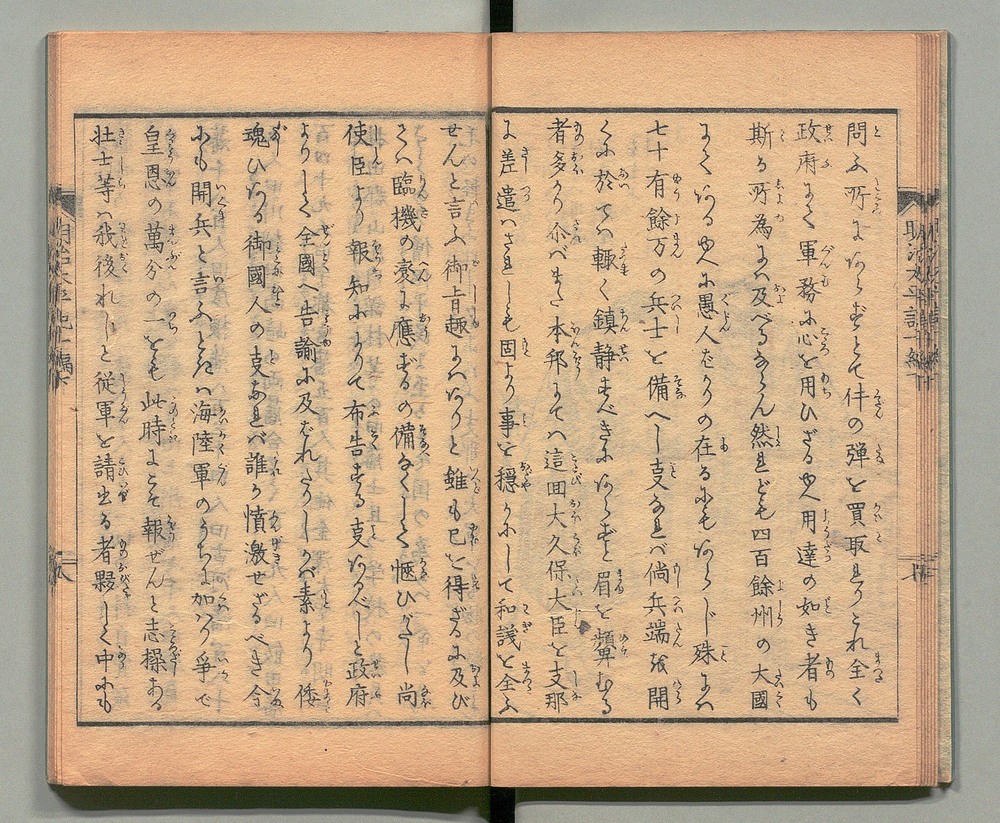 問ふ所にあらずとて件の弾を買取りたりこれ全く
政府にて軍務に心を用ひざる也用達の如き者も
斯る所為には及べるならん然れども四百餘州の大國
にてある也に愚人ばかりの在るにもあらじ殊には
七十有餘万の兵士を備へし事なれバ倘兵端を開
くに於てハ輙く鎮静すべきにあらずと眉を顰むる
者多かり尒ハまた本邦にてハ這回大久保大臣を支那
に差遣ハされしも固より事を穏かにして和議を全ふ
せんと言ふ御旨趣にハありと雖も已を得ざるに及び
てハ臨機の変に應ずるの備なくして愜ひがたし尚
使臣より報知によりて布告する事あるべしと政府
よりして全國へ告諭に及ばれたりしかバ素より倭
魂ひある御國人の事なれバ誰か憤激せざるべき今
にも開兵と言ふときハ海陸軍のうちに加ハり争で
皇恩の萬分の一をも此時にこそ報ぜんと志操ある
壮士等ハ我後れじと従軍を請出る者夥しく中にも
明治太平記十編